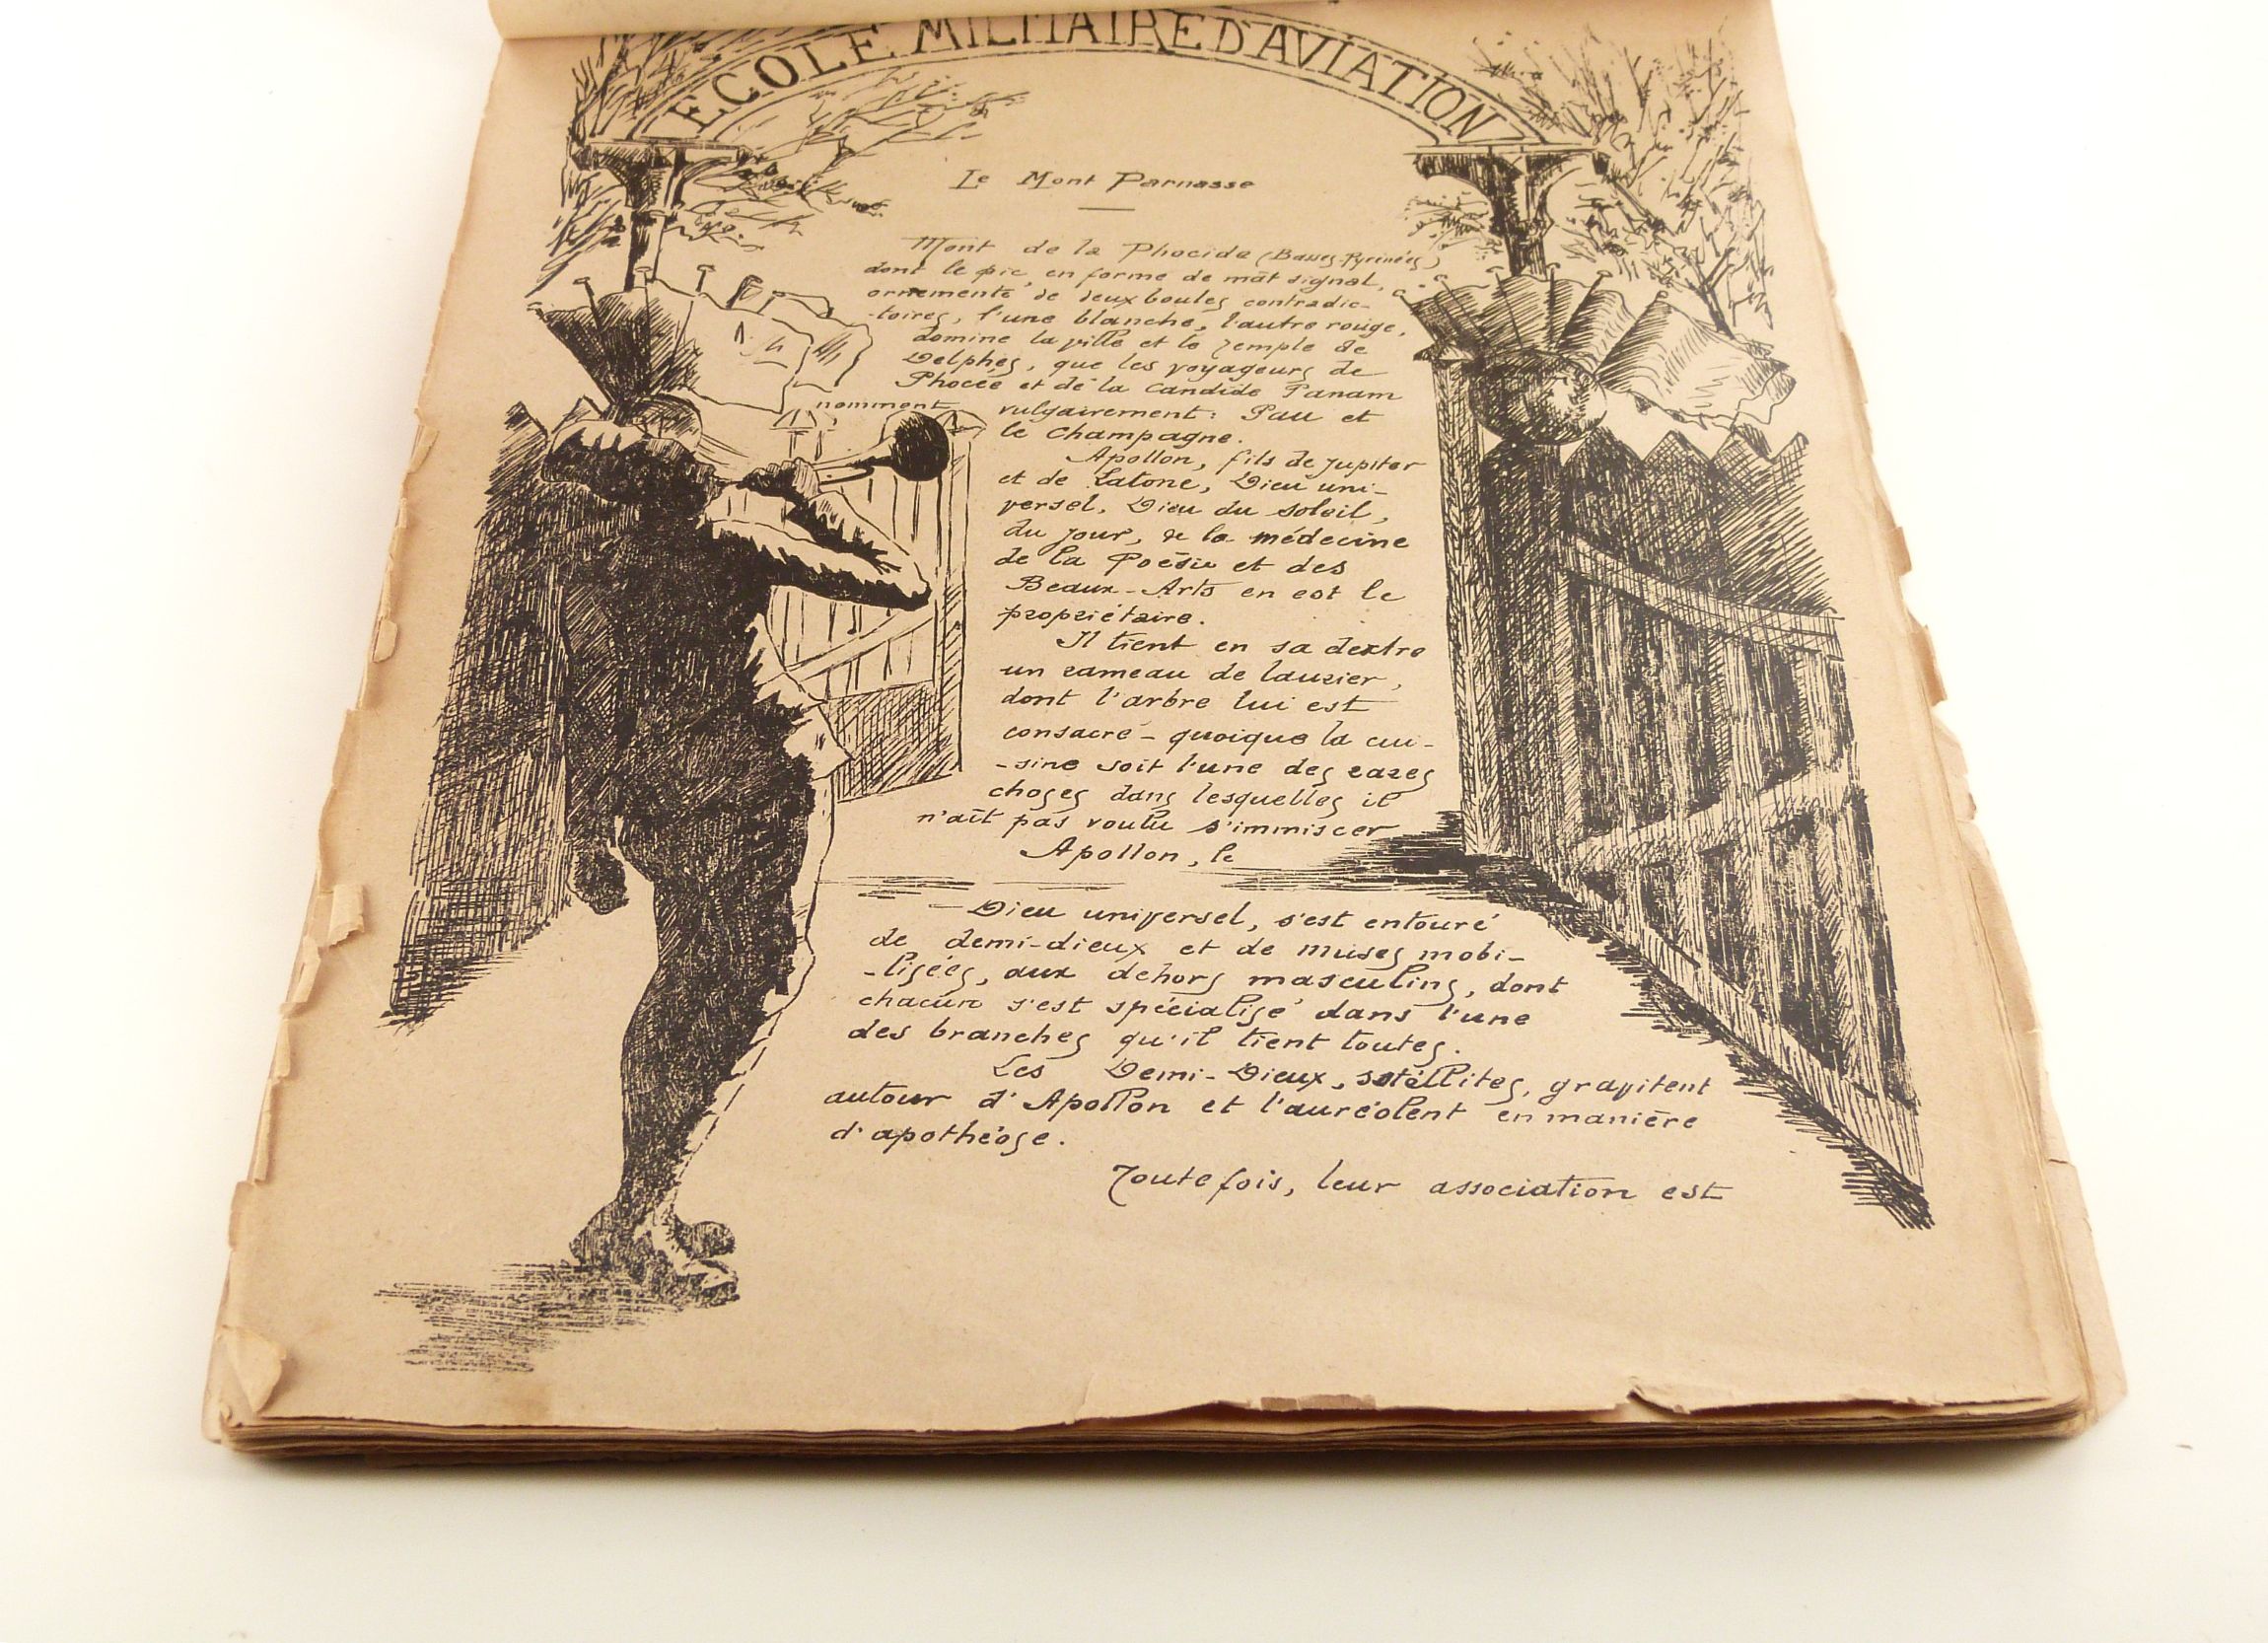 ECOLE MILITAIRE D'AVIATION
Le Mont Parnasse
Mont de la Phocide (Basses Pyrénées)
dont le pic, en forme de mât signal,
ornementé de deux boules contradic-
-toires, l'une blanche, l'autre rouge,
domine la ville et le temple de
Delphes, que les voyageurs de
Phocée et de la candide Panam
nomment vulgairement: Pau et
le Champagne.
Apollon, fils de Jupiter
et de Latone, Dieu uni-
versel, Dieu du soleil,
du jour, de la médecine
de la Poësie et des
Beaux-Arts en est le
propriétaire.
Il tient en sa dextre
un rameau de laurier,
dont l'arbre lui est
consacré - quoique la cui-
-sine soit l'une des rares
choses dans lesquelles il
n'ait pas voulu s'immiscer
Apollon, le
Dieu universel, s'est entouré
de demi-dieux et de muses mobi-
-lisées, aux dehors masculins, dont
chacun s'est spécialisé dans l'une
des branches qu'il tient toutes.
Les Demi-Dieux, satellites, gravitent
autour d'Apollon et l'auréolent en manière
d'apothéose.
Toutefois, leur association est